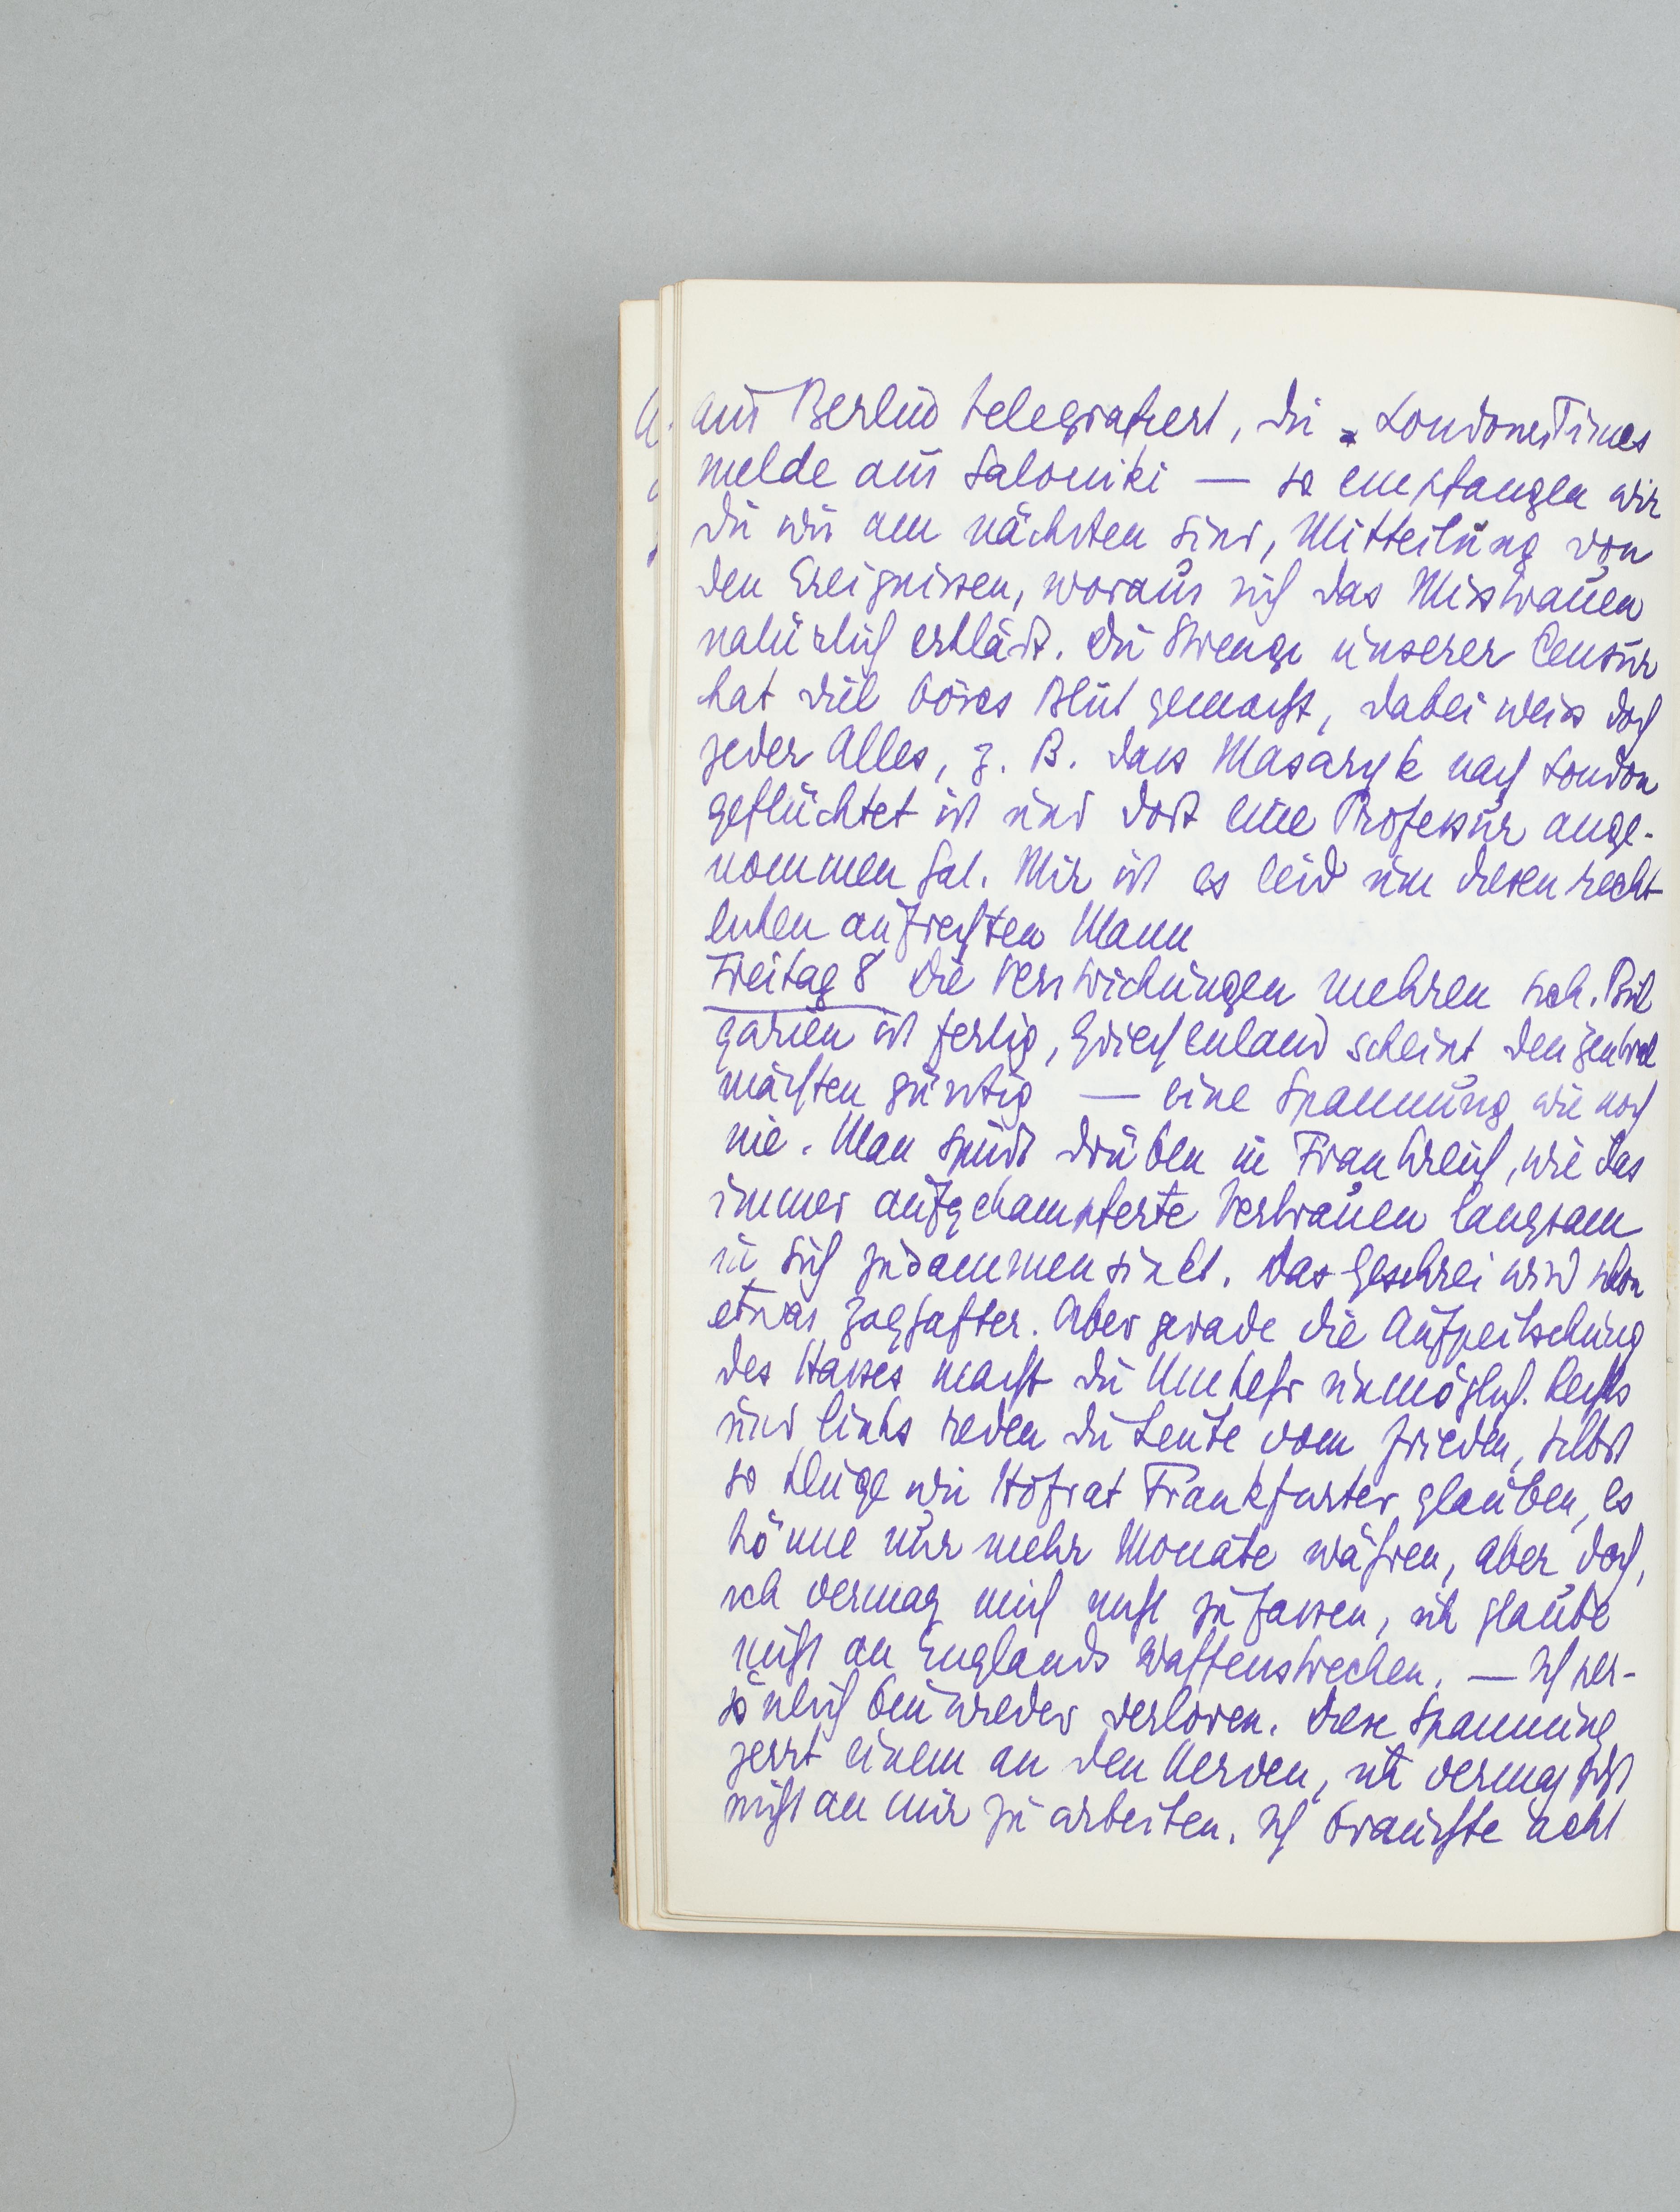 aus Berlin telegrafiert, die London Times
melde aus Saloniki — so empfangen wir
die wir am nächsten sind, Mitteilung von
den Ereignissen, woraus sich das Misstrauen
natürlich erklärt. Die Strenge unserer Censur
hat viel böses Blut gemacht, dabei weiss doch
jeder Alles, z. B. dass Masaryk nach London
geflüchtet ist und dort eine Professur ange-
nommen hat. Mir ist es leid um diesen recht
lichen aufrechten Mann
Freitag 8 Die Verstrickungen mehren sich. Bul
garien ist fertig, Griechenland scheint den Zentral
mächten günstig — eine Spannung wie noch
nie. Man spürt drüben in Frankreich, wie das
immer aufgekampferte Vertrauen langsam
in sich zusammensinkt. Das Geschrei wird schon
etwas zaghafter. Aber gerade die Aufpeitschung
des Hasses macht die Umkehr unmöglich. Rechts
und links reden die Leute vom Frieden, selbst
so kluge wie Hofrat Frankfurter glauben, es
könne nur mehr Monate währen, aber doch,
ich vermag mich nicht zu fassen, ich glaube
nicht an Englands Waffenstrecken. — Ich per-
sönlich bin wieder verloren. Diese Spannung
zerrt einem an den Nerven, ich vermag jetzt
nicht an mir zu arbeiten. Ich brauchte acht